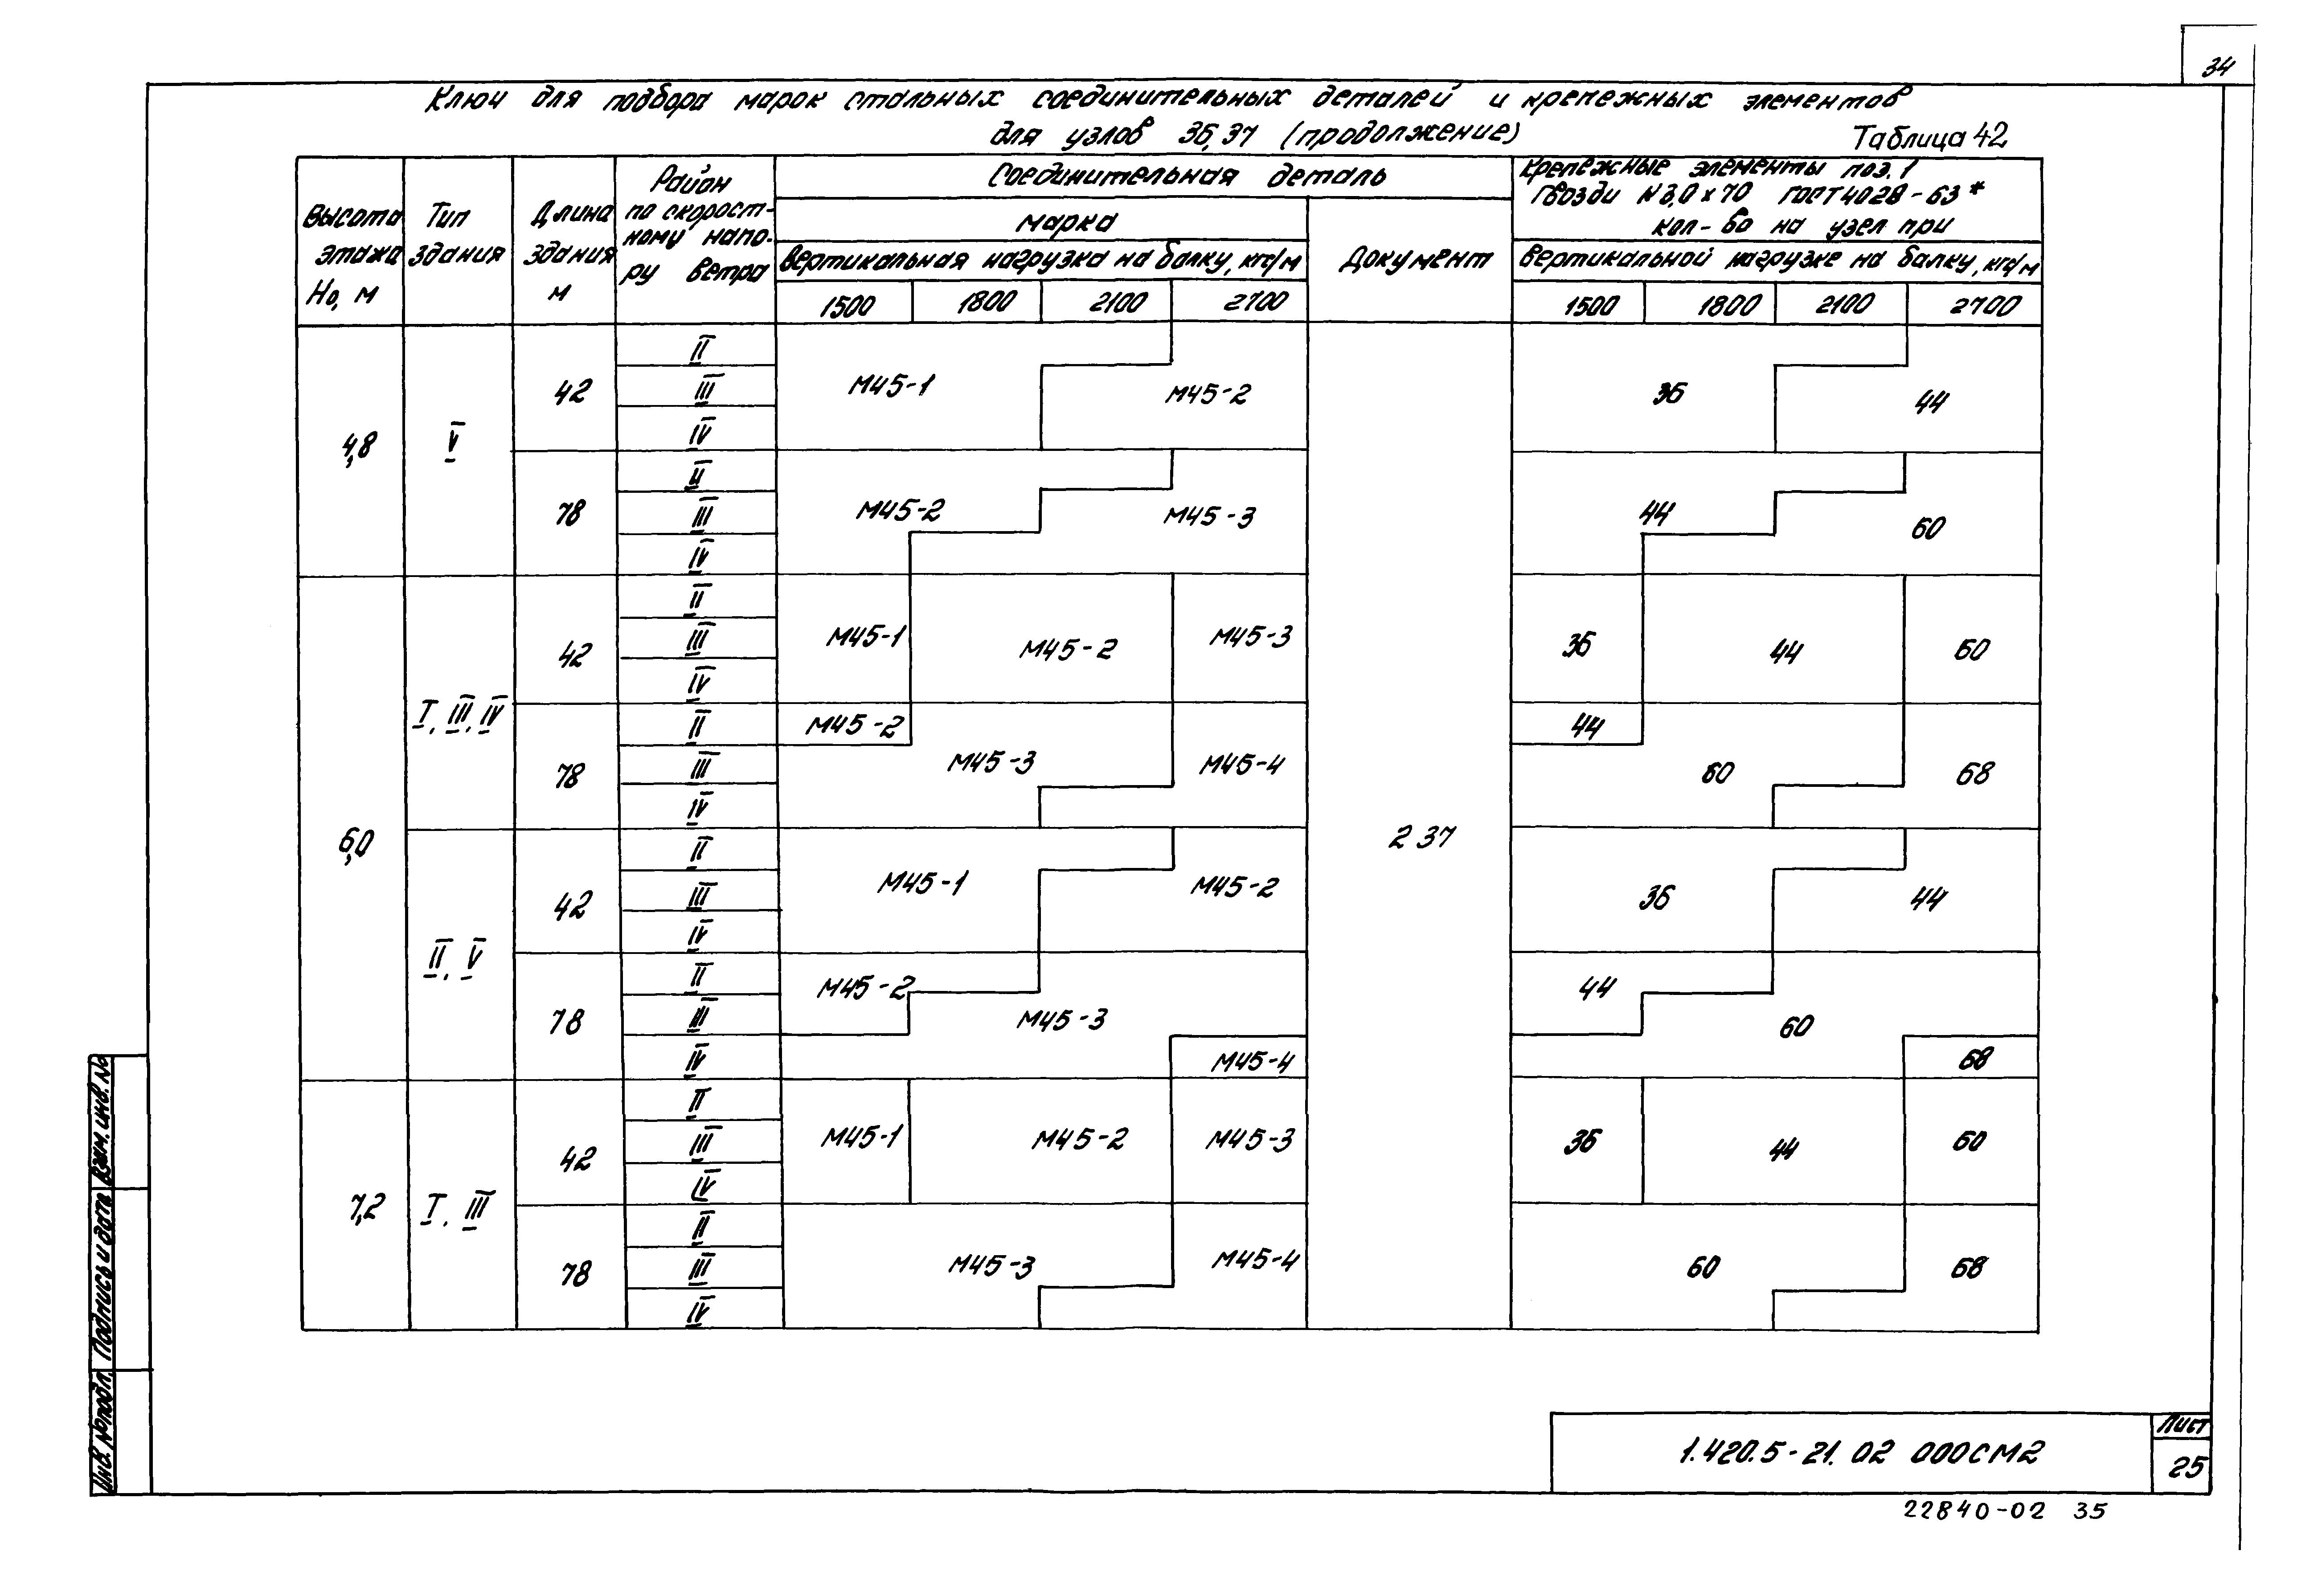 34
Ключ для подбора марок стальных соединительных деталей и крепежных элементов
для узлов 36, 37 (продолжение)
Таблица 42
Высота этажа Но, м
Тип здания
Длина здания м
Район по скорост-ному напо-ру ветра
Соединительная деталь
марка
Вертикальная нагрузка на балку, кгс/м
1500 1800 2100 2700
Документ
Крепежные элементы поз. 1
Гвозди К 3,0 х 70 ГОСТ 4028-63*
кол-во на узел при
вертикальной нагрузке на балку, кгс/м
1500 1800 2100 2700
4,8 V 42 II
III М45-1 М45-2 36 44
IV
78 II
III М45-2 М45-3 44 60
IV
6,0 I, III, IV 42 II
III М45-1 М45-2 М45-3 36 44 60
IV
78 II М45-2 44
III М45-3 М45-4 60 68
IV
2 37
II, V 42 II
III М45-1 М45-2 36 44
IV
78 II М45-2 44
III М45-3 60
IV М45-4 68
7,2 I, III 42 II
III М45-1 М45-2 М45-3 36 44 60
IV
78 II
III М45-3 М45-4 60 68
IV
Инв. № подл. Подпись и дата Взам. инв. №
1.420.5-21.02 000СМ2
Лист
25
22840-02 35